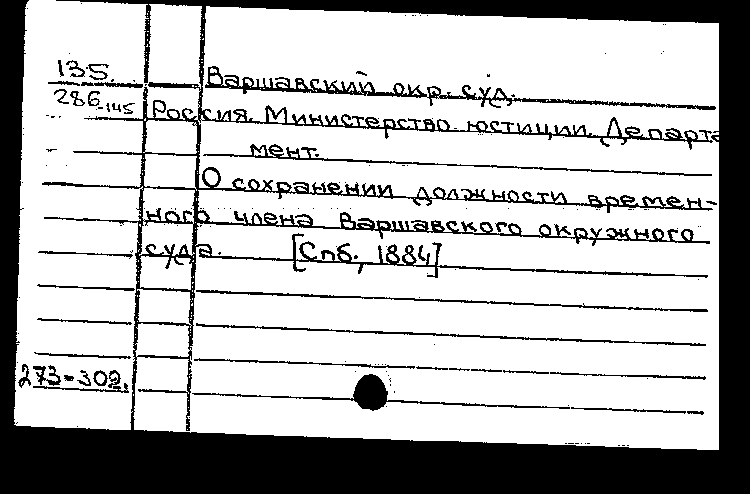 135. Варшавский окр. суд.
286-145 Россия. Министерство юстиции. Департа
мент.
О сохранении должности времен-
ного члена Варшавского окружного
суда. [Спб., 1884]
273-302.